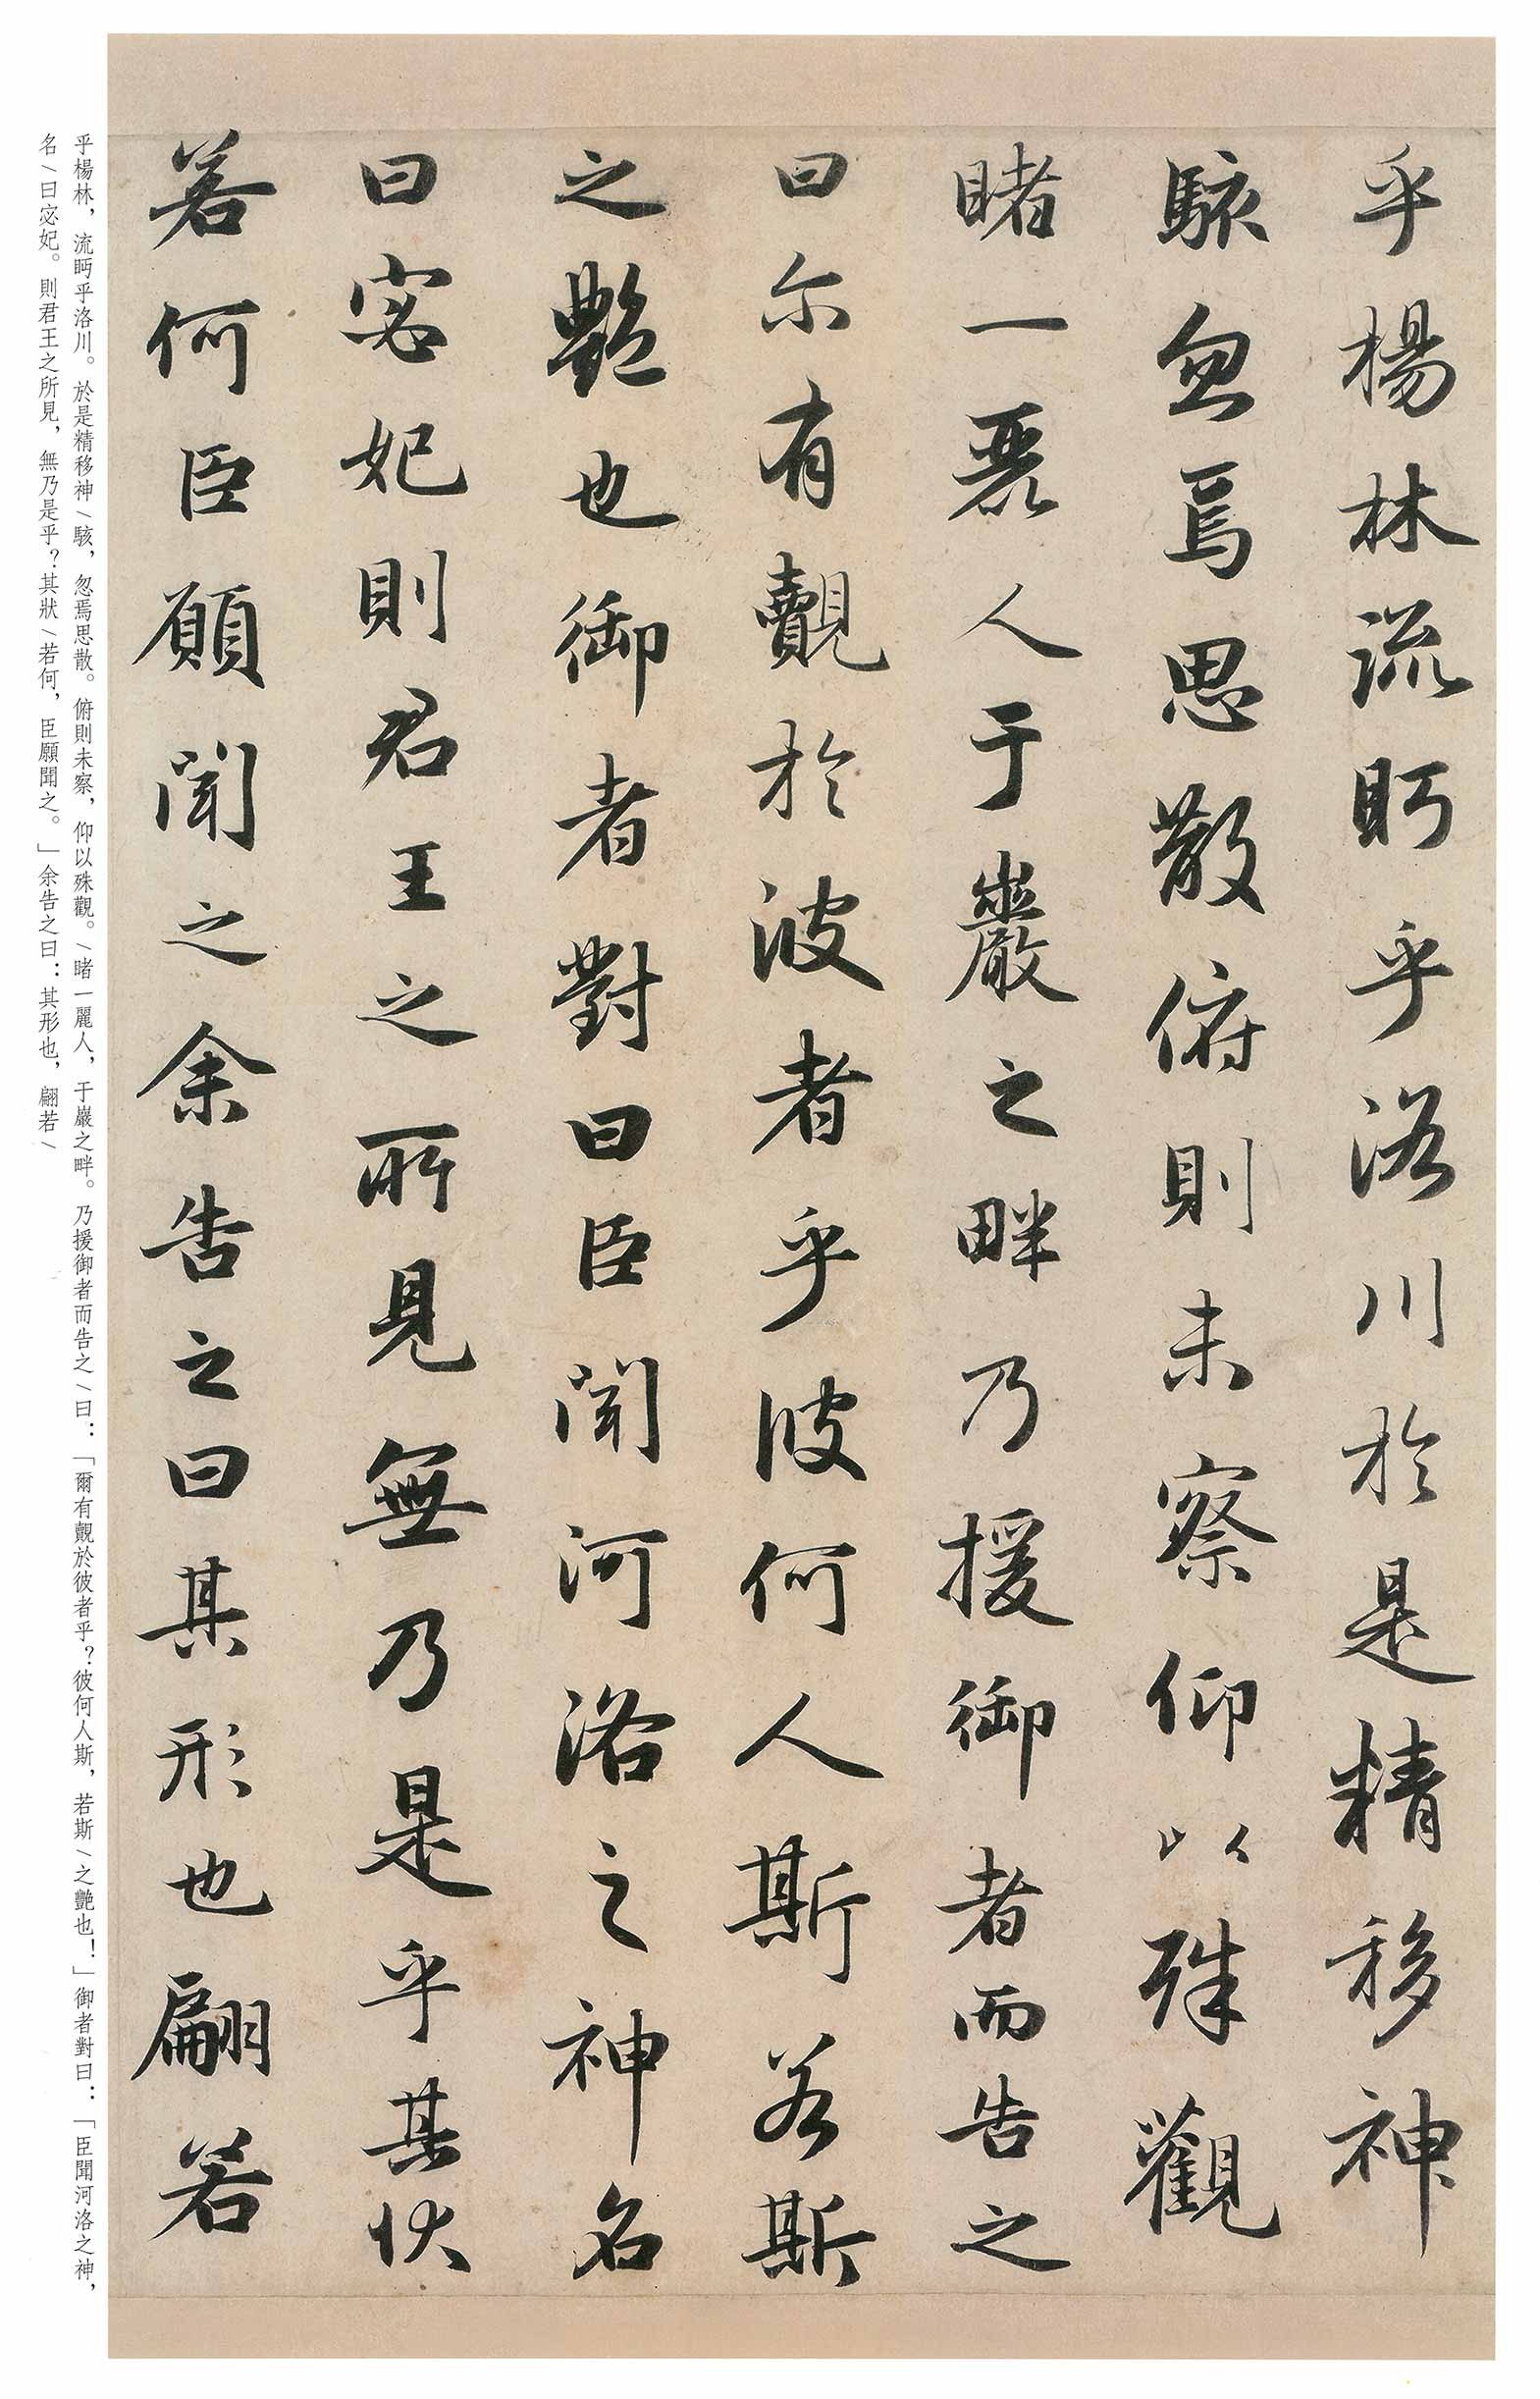 乎楊林流眄乎洛川於是精移神
駭忽焉思散俯則未察仰以殊觀
睹一麗人于巖之畔乃援御者而告之
曰尔有覿於彼者乎彼何人斯若斯
之艷也御者對曰臣聞河洛之神名
曰宓妃則君王之所見無乃是乎其狀
若何臣願聞之余告之曰其形也翩若
乎楊林，流眄乎洛川。於是精移神\駭，忽焉思散。俯則未察，仰以殊觀。\睹一麗人，于巖之畔。乃援御者而告之\曰：「爾有覿於彼者乎？彼何人斯，若斯\之艷也！」御者對曰：「臣聞河洛之神，
名\曰宓妃。則君王之所見，無乃是乎？其狀\若何，臣願聞之。」余告之曰：其形也，翩若\